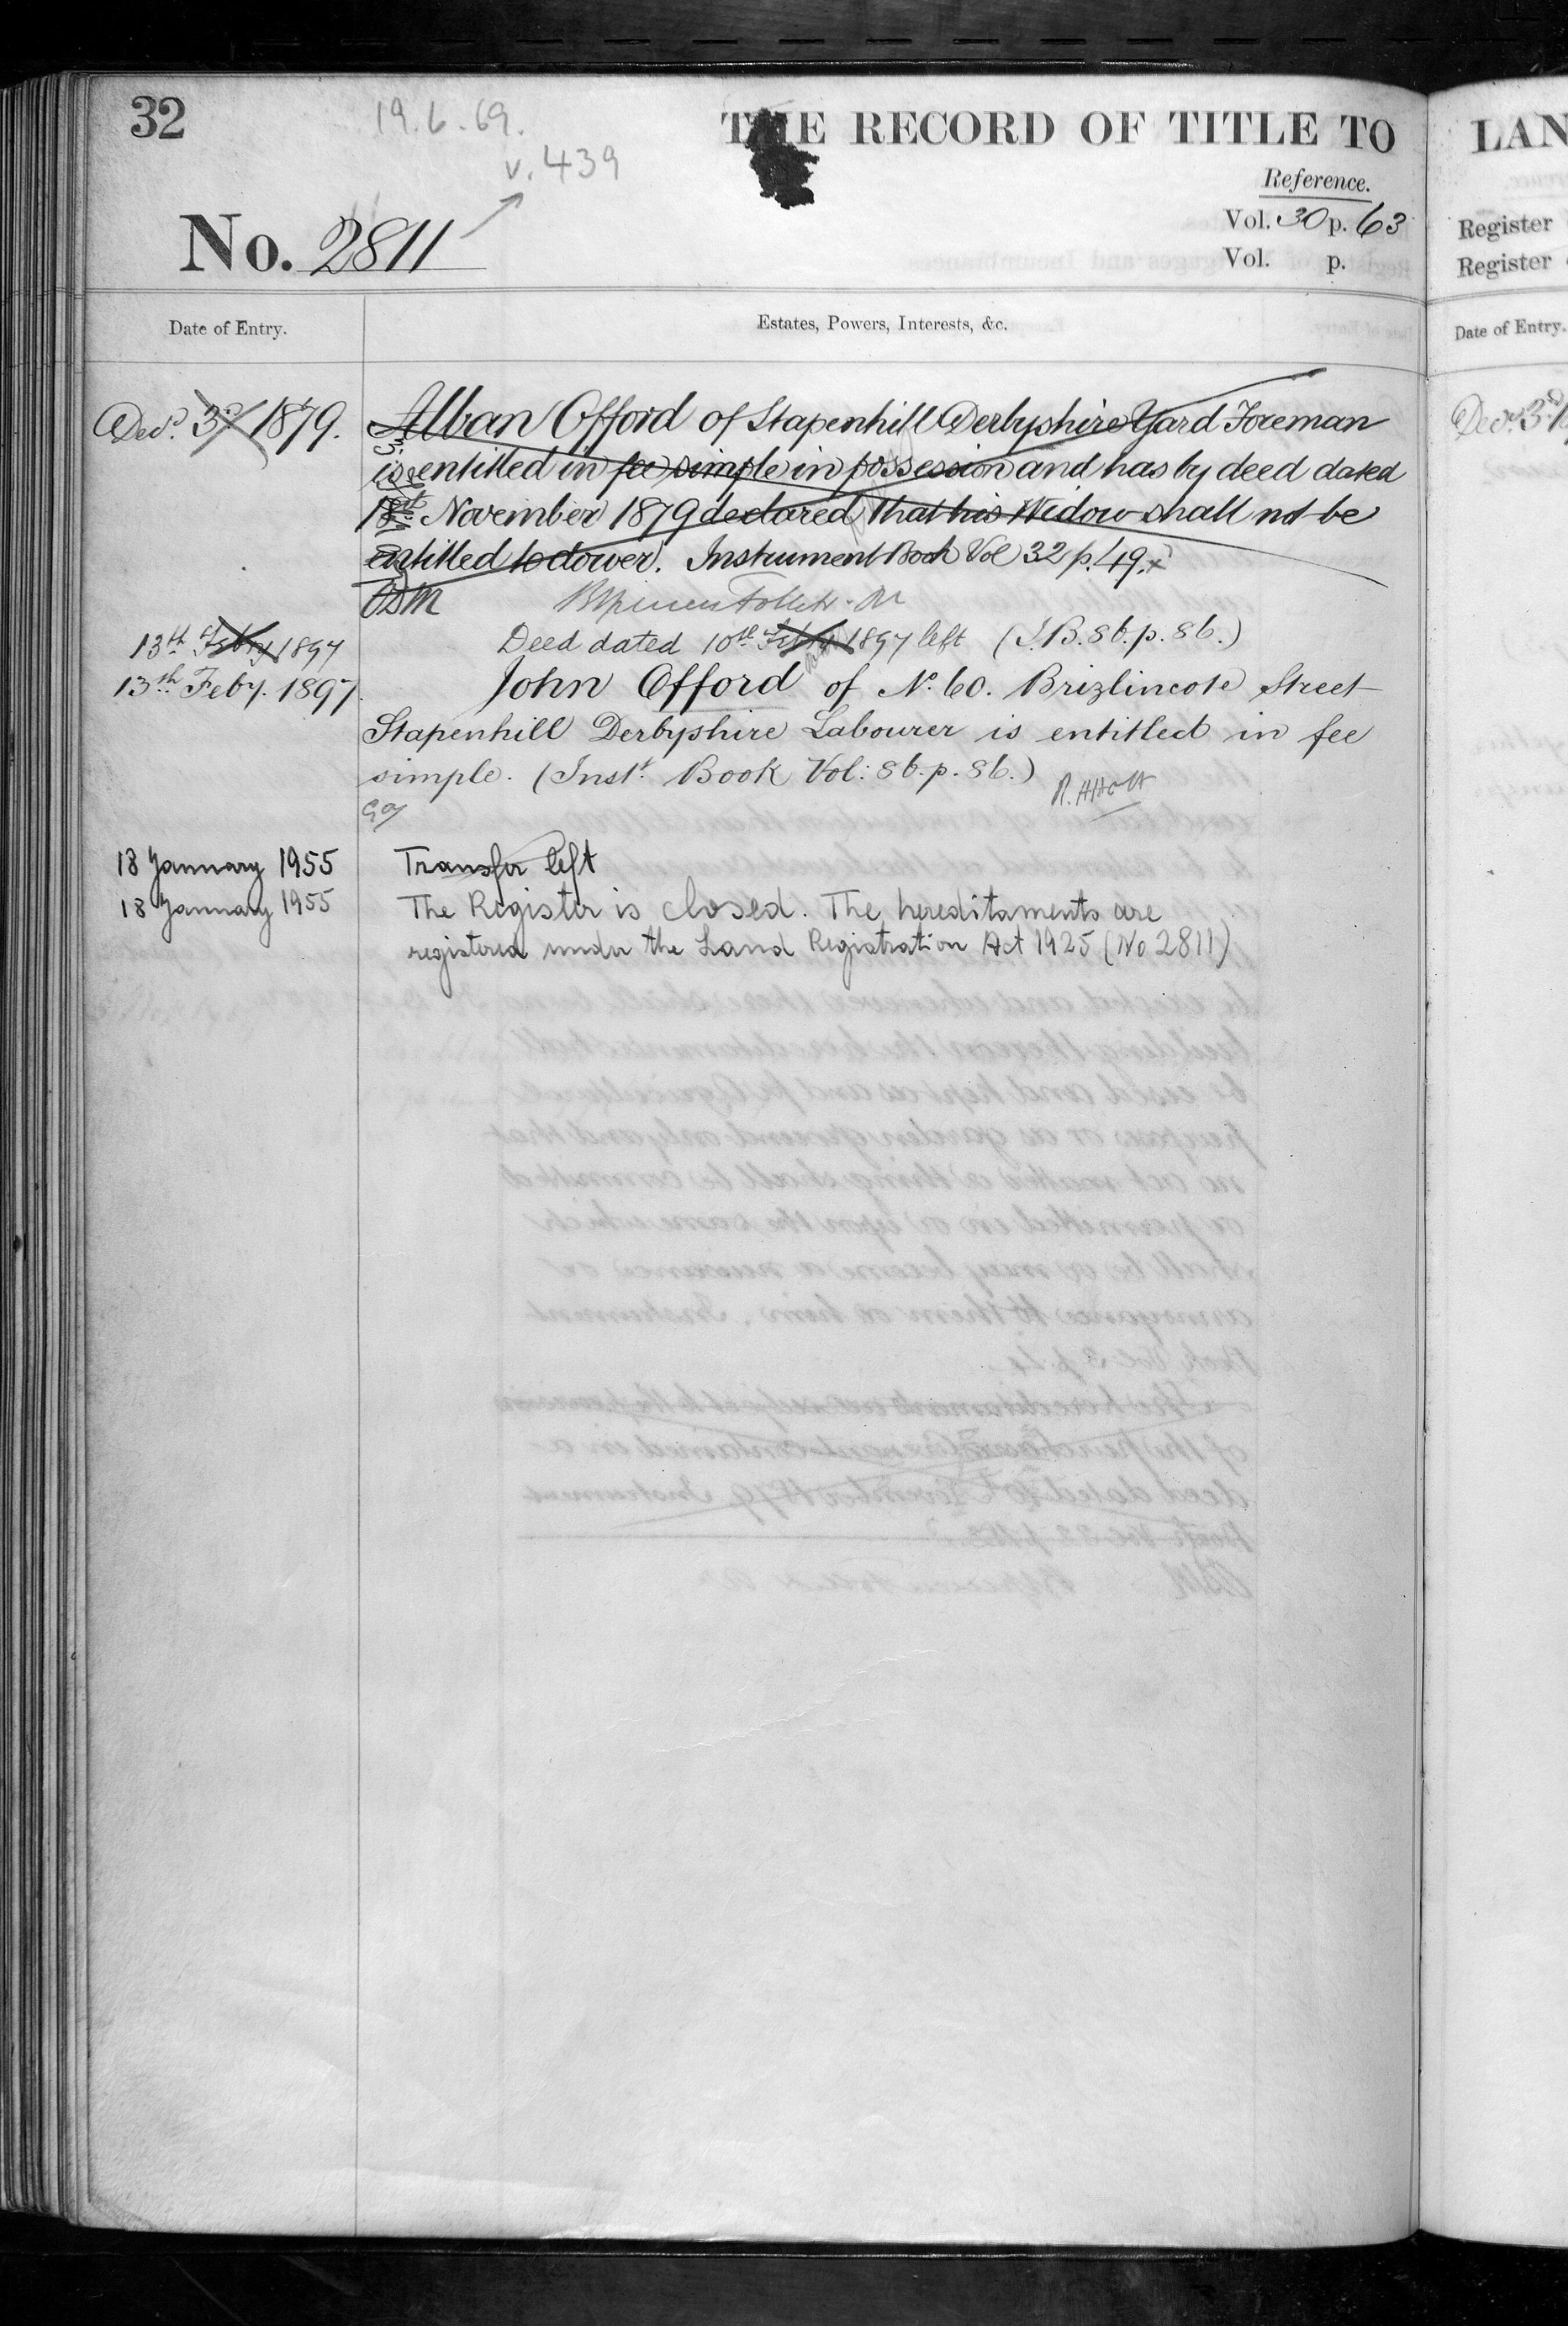 32
19.6.69.
v. 439
THE RECORD OF TITLE TO
LAN
Reference.
Vol. 30 p. 63
Vol. p.
No. 2811
Register
Register
Date of Entry.
Estates, Powers, Interests, &c.
Date of Entry.
Decr. 3rd 1879.
Alban Offord of Stapenhill Derbyshire Yard Foreman
is entitled in fee simple in possession and has by deed dated
18th November 1879 declared that his Widow shall not be
entitled to dower. Instrument Book Vol 32 p. 49.
13th Feby 1897
Deed dated 10th Feby 1897 left (I.B. 86. p. 86.)
13th Feby. 1897.
John Offord of No. 60. Brizlincote Street
Stapenhill Derbyshire Labourer is entitled in fee
simple. (Inst. Book Vol: 86. p. 86.)
18 January 1955
Transfer left
18 January 1955
The Register is closed. The hereditaments are
registered under the Land Registration Act 1925 (No 2811)